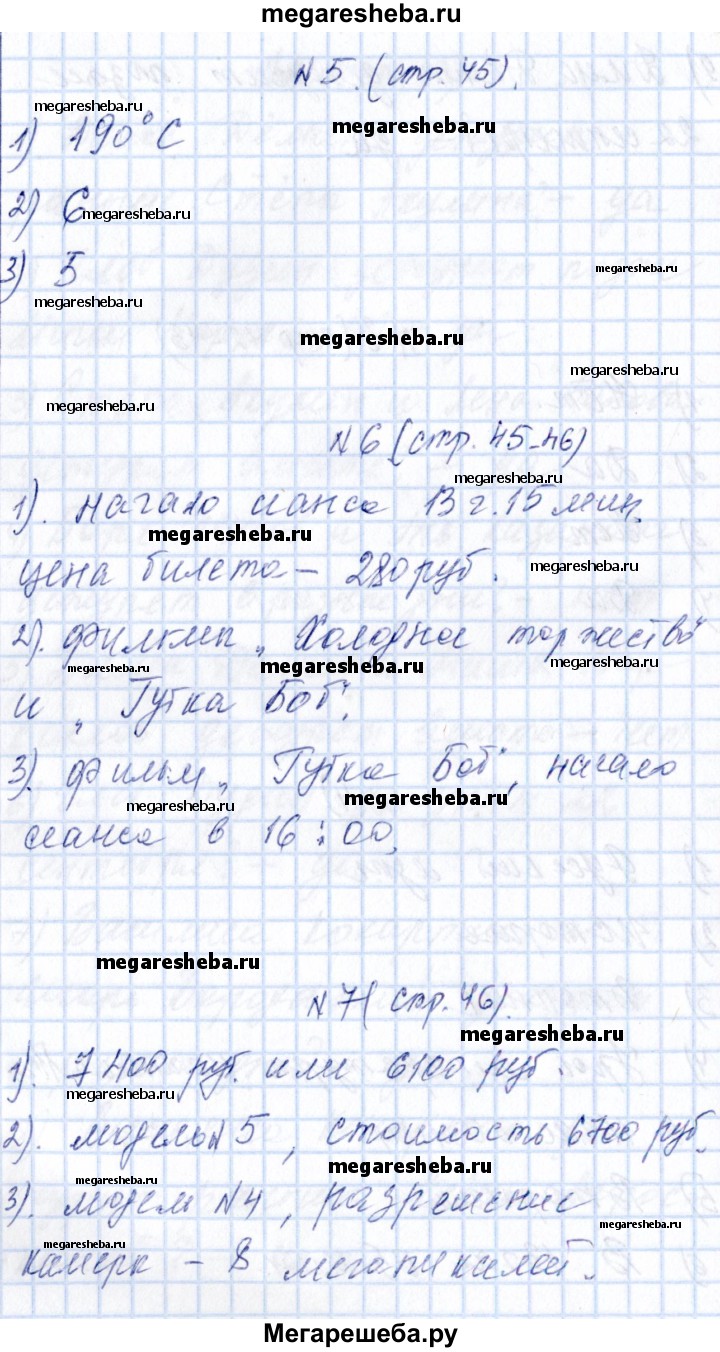 megaresheba.ru
№5. (стр. 45).
megaresheba.ru
megaresheba.ru
1) 190°С
2) 6
megaresheba.ru
3) 5
megaresheba.ru
megaresheba.ru
megaresheba.ru
megaresheba.ru
megaresheba.ru
№6 (стр. 45-46)
megaresheba.ru
1). начало сианса 13 ч. 15 мин,
megaresheba.ru
цена билета – 280 руб.
megaresheba.ru
2). „Холодное торжество"
megaresheba.ru
megaresheba.ru
megaresheba.ru
и „Губка Боб",
3). фильм „Губка Боб", начало
megaresheba.ru
megaresheba.ru
сианса в 16:00,
megaresheba.ru
№7( стр. 46).
megaresheba.ru
1). 7400 руб. или 6100 руб.
megaresheba.ru
2). модель№5, стоимость 6700 руб.
megaresheba.ru
megaresheba.ru
3). №4, разрешение
megaresheba.ru
megaresheba.ru
– 8
Мегарешеба.ру